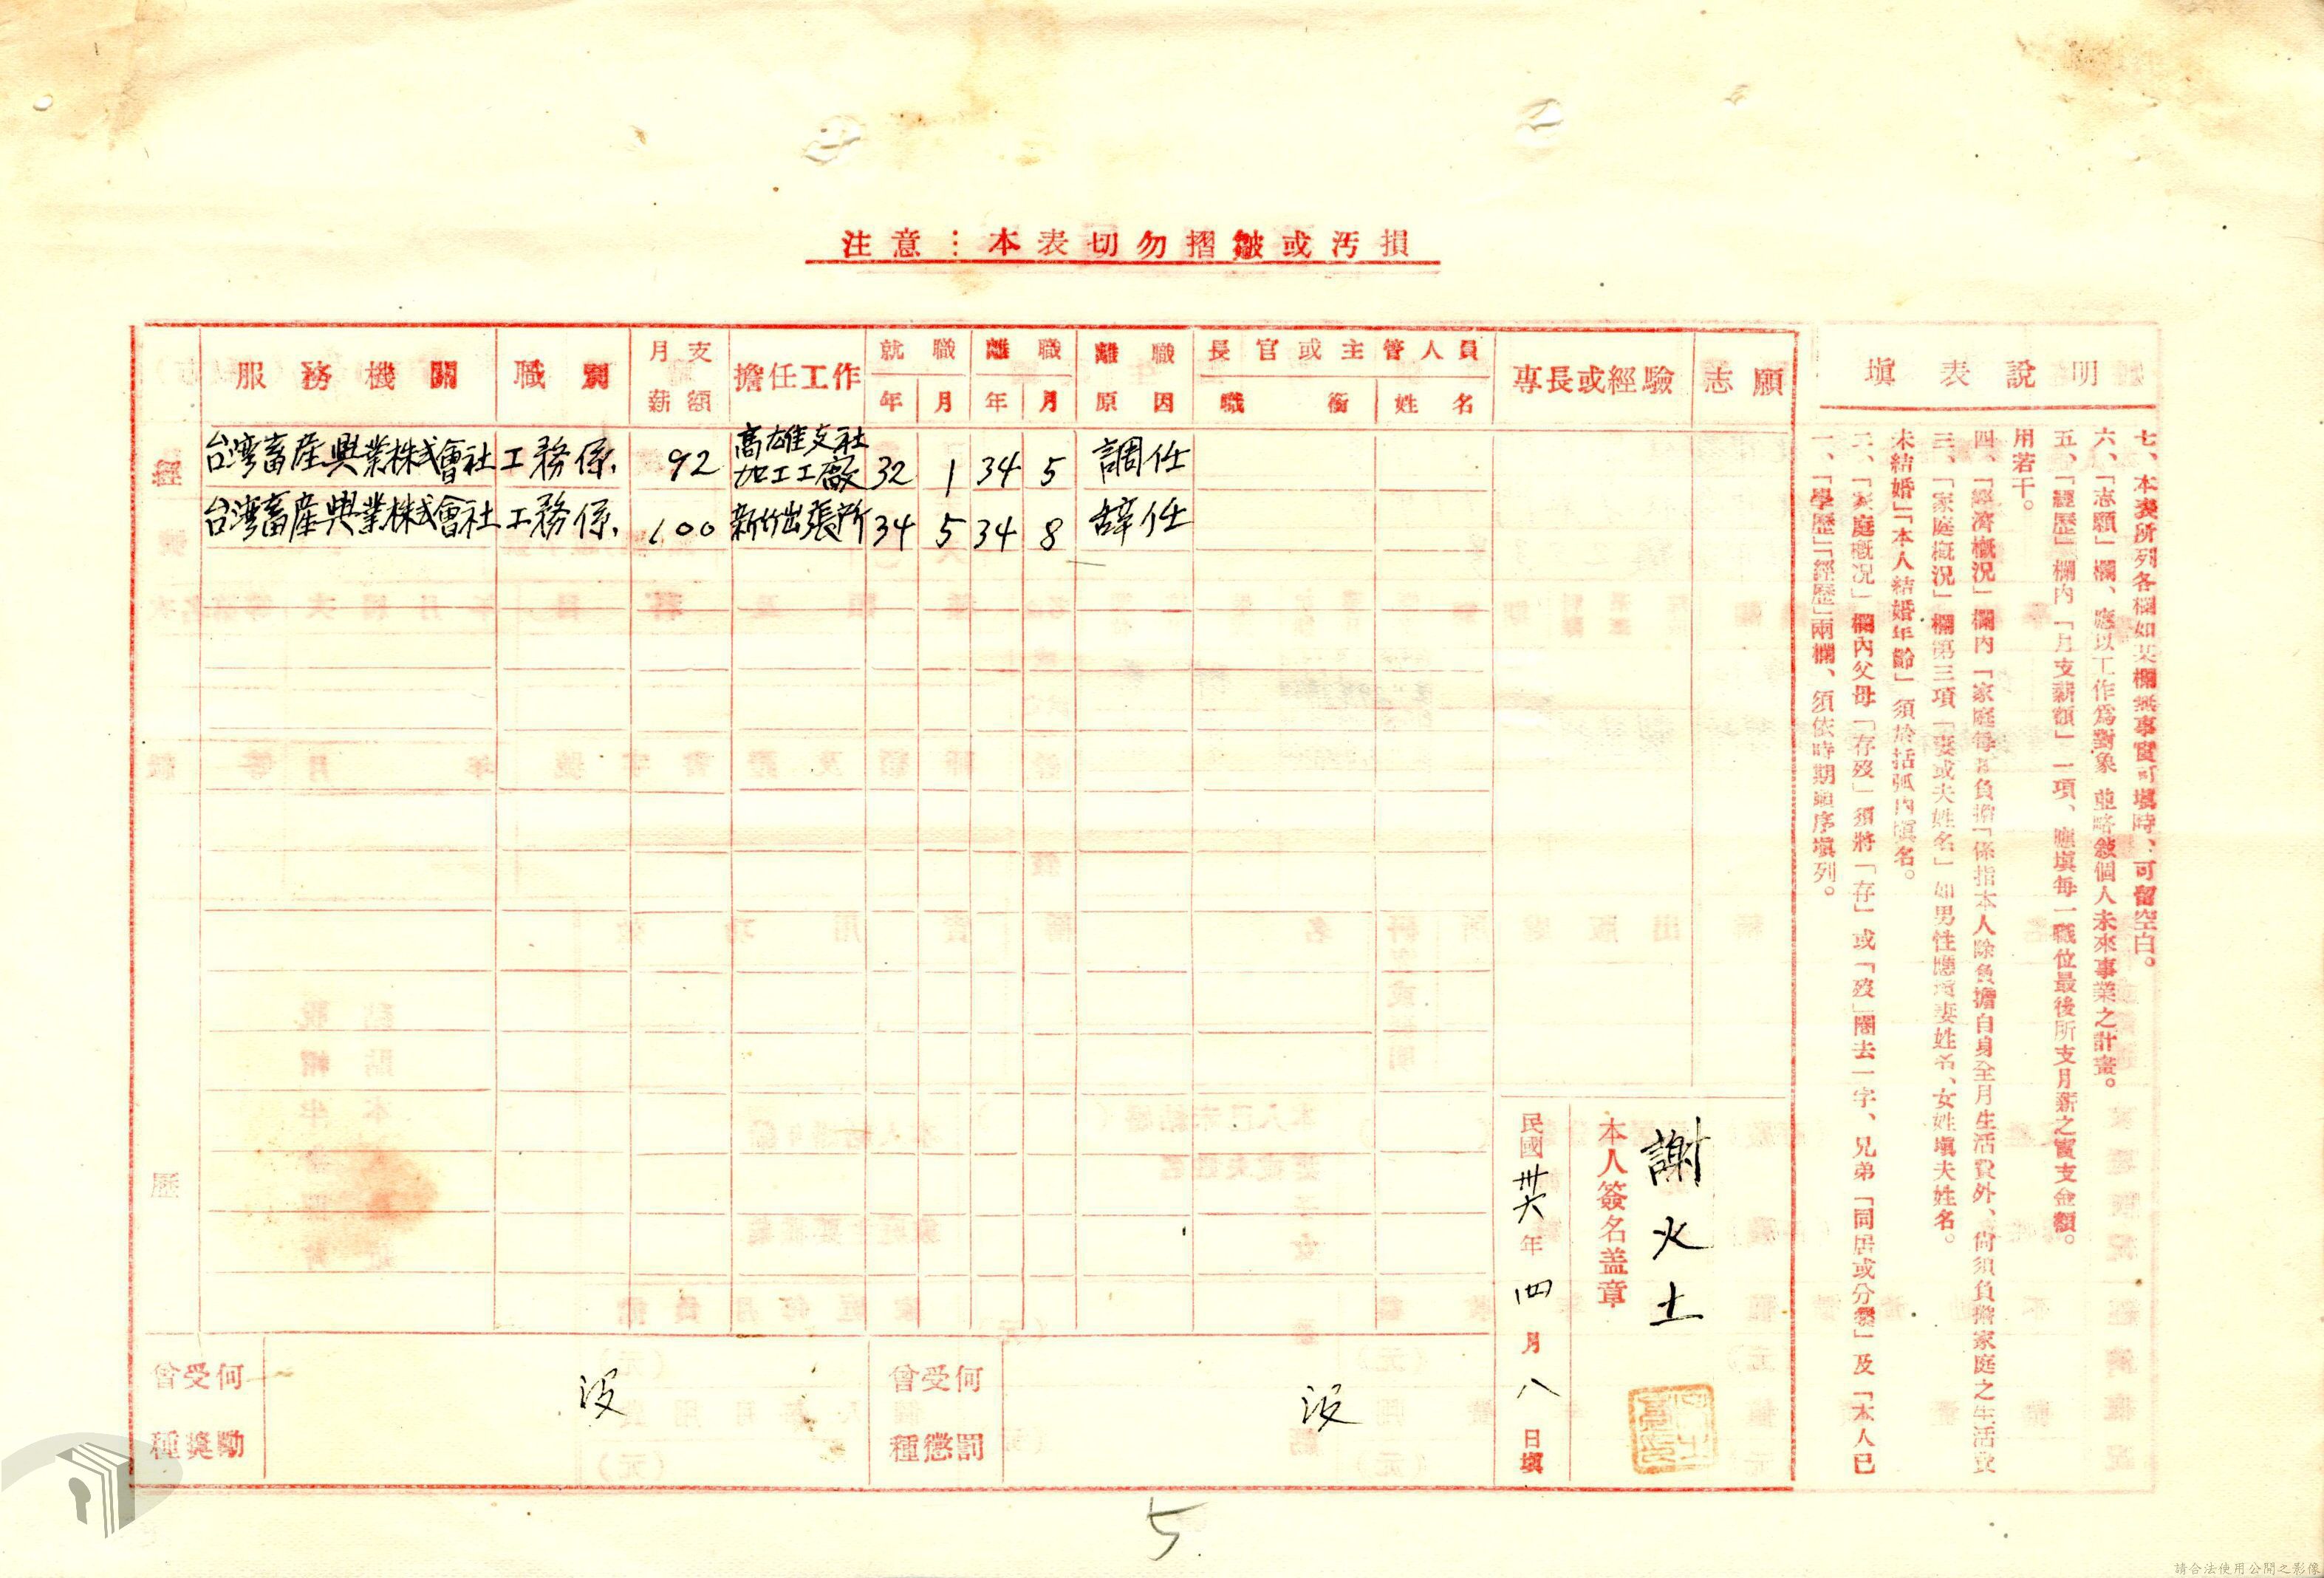 注意：本表切勿摺皺或汚損
經歷
服務機關 職別 月支薪額 擔任工作 就職 年 月 離職 年 月 離職原因 長官或主管人員 職銜 姓名 專長或經驗 志願
台湾畜產興業株式會社 工務係. 92 高雄支社加工工廠 32 1 34 5 調任
台湾畜產興業株式會社 工務係. 100 新竹出張所 34 5 34 8 辞任
曾受何種奬勵 没
曾受何種懲罰 没
本人簽名盖章 謝火土
民國卅六年四月八日塡
塡表說明
一、「學歷」「經歷」兩欄、須依時期順序塡列。
二、「家庭槪況」欄內父母「存歿」須將「存」或「歿」圈去一字、兄弟「同居或分爨」及「本人已
未結婚」「本人結婚年齡」須於括弧內塡名。
三、「家庭槪況」欄第三項「妻或夫姓名」如男性應塡妻姓名、女姓塡夫姓名。
四、「經濟槪況」欄內「家庭每月負擔「係指本人除負擔自身全月生活費外、尙須負擔家庭之生活費
用若干。
五、「經歷」欄內「月支薪額」一項、應塡每一職位最後所支月薪之實支金額。
六、「志願」欄、應以工作爲對象 並略敍個人未來事業之計畫。
七、本表所列各欄如某欄無事實可塡時、可留空白。
5
請合法使用公開之影像